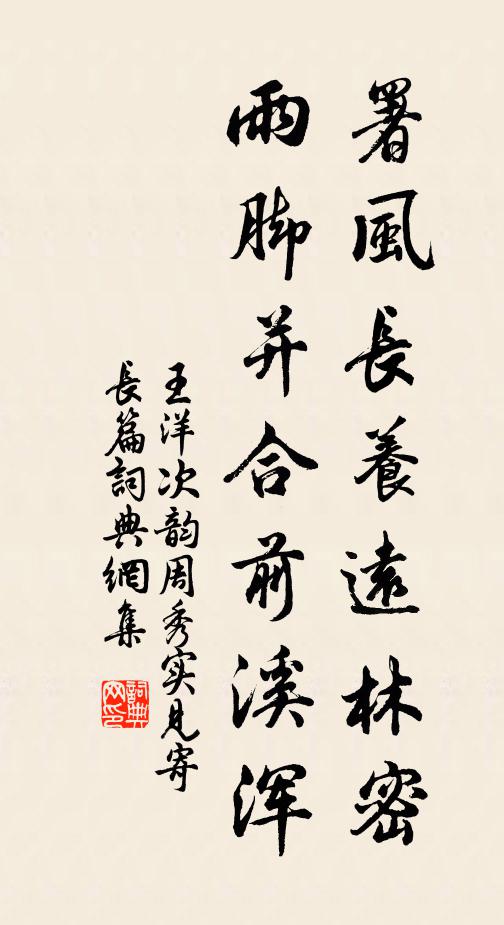 署風長養遠林密
雨脚并合前溪浑
王洋次韵周秀实见寄
長篇詞典網集
詞典
网印